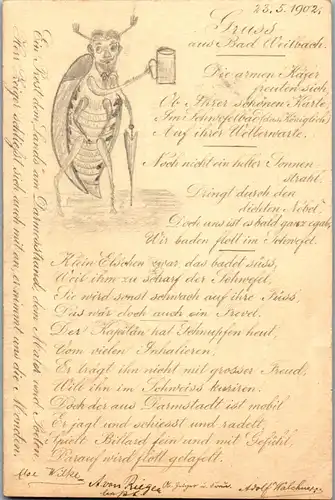 23.5.1902.
Gruss
aus Bad Weilbach.
Die armen Käfer
freuten sich,
Ob Ihrer schönen Karte
Im Schwefelbad (etwas Königlich)
Auf ihrer Wetterwarte.
Noch nicht ein heller Sonnen
strahl,
Dringt durch den
dichten Nebel,
Doch uns ist es bald ganz egal,
Wir baden flott im Schwefel.
Klein Elschen zwar das badet süss,
Weil ihm zu scharf der Schwefel,
Sie wird sonst schwach auf ihre Füss,
Das wär doch auch ein Frevel.
Der Kapitän hat Schnupfen heut,
Vom vielen Inhalieren,
Er trägt ihn nicht mit grosser Freud,
Will ihn im Schweiss kurieren.
Doch der aus Darmstadt ist mobil
Er jagt und schiesst und radelt,
Spielt Billard fein und mit Gefühl,
Darauf wird flott
Ein Prost dem Sands am Darmstrand, dem und
Herr Ringel schliesst sich auch mit an er nimmt was die
Else Wilke
A von Rieger
Adolf